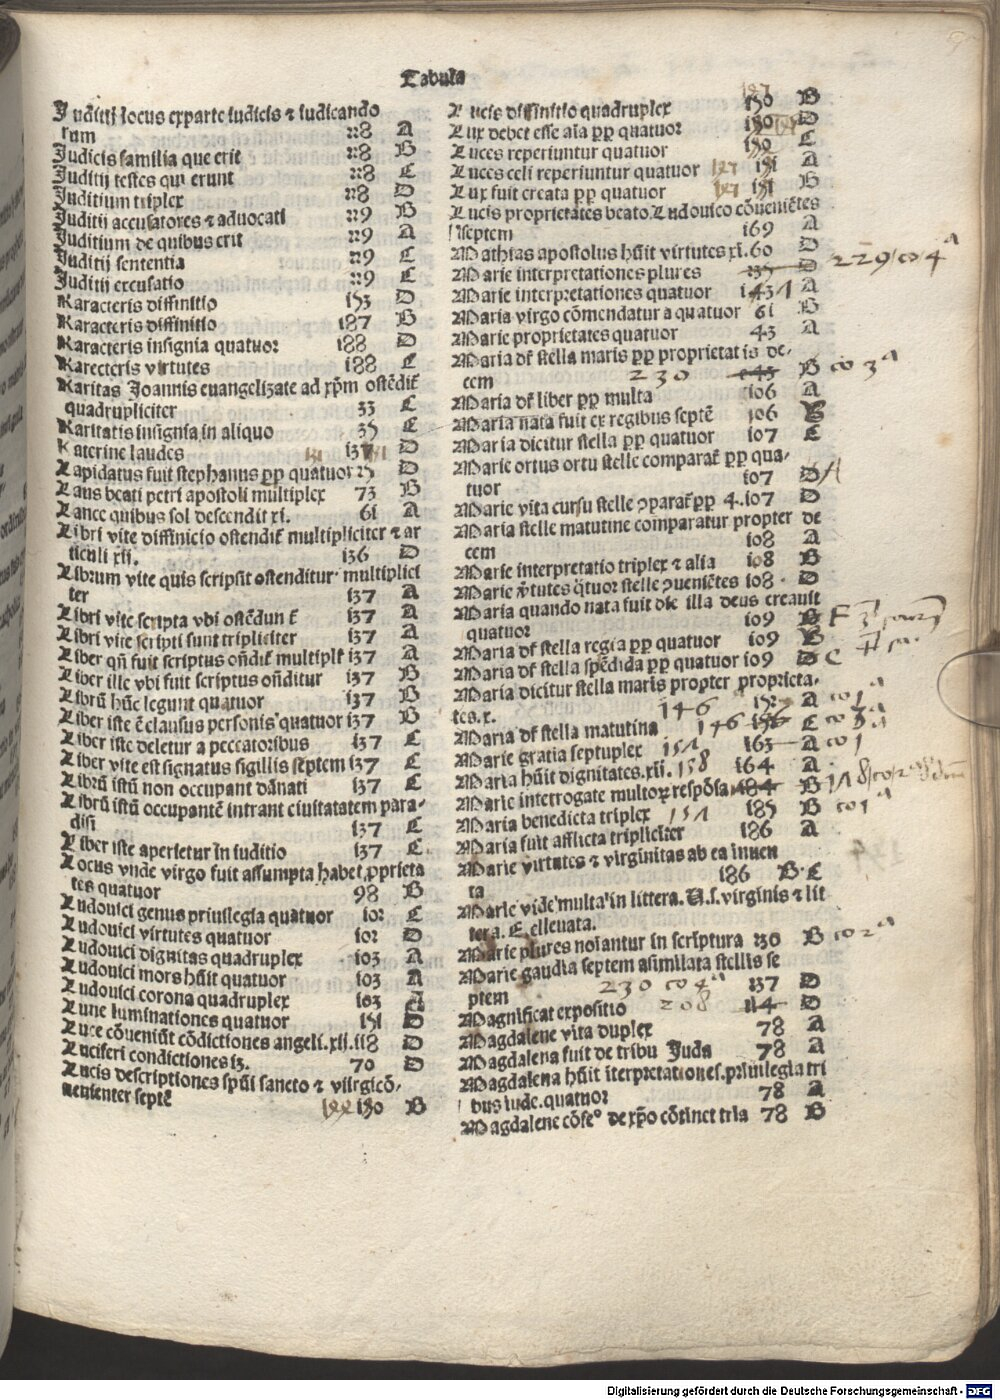 Tabula
Juditij locus exparte iudicis ⁊ iudicando
rum 228 A
Judicis familia que erit 228 B
Juditij testes qui erunt 228 C
Juditium triplex 228 D
Juditij accusatores ⁊ aduocati 229 B
Juditium de quibus erit 229 A
Juditij sententia 229 C
Juditij excusatio 229 C
Karacteris diffinitio 153 D
Karacteris diffinitio 187 B
Karacteris insignia quatuor 188 D
Karecteris virtutes 188 C
Karitas Joannis euangelizate ad xp̄m ostēdit̄
quadrupliciter 33 C
Karitatis insignia in aliquo 35 C
Katerine laudes D
Lapidatus fuit stephanus ꝓp quatuor 25 D
Laus beati petri apostoli multiplex 73 B
Lance quibus sol descendit xi. 61 A
Libri vite diffinicio ostendit̄ multipliciter ⁊ ar
ticuli xii. 136 D
Librum vite quis scripsit ostenditur multiplici
ter 137 A
Libri vite scripta vbi ostēdun t̄ 137 A
Libri vite scripti sunt tripliciter 137 A
Liber qn̄ fuit scriptus on̄dit̄ multiplr̄ 137 A
Liber ille vbi fuit scriptus on̄ditur 137 B
Librū hūc legunt quatuor 137 B
Liber iste ē clausus personis quatuor 137 B
Liber iste deletur a peccatoribus 137 C
Liber vite est signatus sigillis septem 137 C
Librū istū non occupant dānati 137 C
Librū istū occupantē intrant ciuitatatem para-
disi 137 C
Liber iste aperietur in iuditio 137 C
Locus vnde virgo fuit assumpta habet ꝓprieta
tes quatuor 98 B
Ludouici genus priuilegia quatuor 102 C
Ludouici virtutes quatuor 102 D
Ludouici dignitas quadruplex 103 A
Ludouici mors hūit quatuor 103 A
Ludouici corona quadruplex 103 A
Lune luminationes quatuor 151 D
Luce cōueniūt cōdictiones angeli.xii. 118 D
Luciferi condictiones iz. 70 D
Lucis descriptiones spūi sancto ⁊ viirgicō-
uenienter septē 150 B
Lucis diffinitio quadruplex 150 B
Lux debet esse aīa ꝓp quatuor 150 D
Luces reperiuntur quatuor 150 C
Luces celi reperiuntur quatuor 151 A
Lux fuit creata ꝓp quatuor 151 B
Lucis proprietates beato Ludouico cōueniētes
septem 169 A
Mathias apostolus hūit virtutes xi. 60 D
Marie interpretationes plures 135 D 229 co 4ᵃ
Marie interpretationes quatuor 143 A
Maria virgo cōmendatur a quatuor 61 B
Marie proprietates quatuor 43 A
Maria dr̄ stella maris ꝓp proprietat is de-
cem 230 143 B co 3ᵃ
Maria dr̄ liber ꝓp multa 106 A
Maria nata fuit ex regibus septē 106 B
Maria dicitur stella ꝓp quatuor 107 C
Marie ortus ortu stelle comparat̄ ꝓp qua-
tuor 107 D A
Marie vita cursu stelle ꝯparat̄ ꝓp 4. 107 D
Maria stelle matutine comparatur propter de
cem 108 A
Marie interpretatio triplex ⁊ alia 108 B
Marie v̄tutes q̄tuor stelle ꝯueniētes 108 D
Maria quando nata fuit die illa deus creauit
quatuor 109 B
Maria dr̄ stella regia ꝓp quatuor 109 B
Maria dr̄ stella spēdida ꝓp quatuor 109 D C
Maria dicitur stella maris propter proprieta-
tes.x. 146 A co 1ᵃ
Maria dr̄ stella matutina 146 156 C
Marie gratia septuplex 151 163 A co 1
Maria hūit dignitates.xii. 158 164 A
Marie interrogate multoꝝ respōsa 184 B
Maria benedicta triplex 151 185 B co 1ᵃ
Maria fuit afflicta tripliciter 186 A
Marie virtutes ⁊ virginitas ab ea inuen
ta 186 B.C
Marie vide multa in littera.U.s.virginis ⁊ lit
tera. E. elleuata.
Marie plures noiantur in scriptura 130 B co 2ᵃ
Marie gaudia septem asimilata stellis se
ptem 230 co 4ᵃ 137 D
Magnificat expositio 208 114 D
Magdalene vita duplex 78 A
Magdalena fuit de tribu Juda 78 A
Magdalena hūit īterpretationes.priuilegia tri
bus iude.quatuor 78 A
Magdalene cōfeº de xp̄o cōtinet tria 78 B
Digitalisierung gefördert durch die Deutsche Forschungsgemeinschaft - DFG